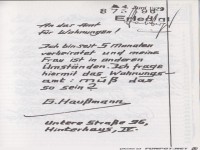 An das Amt
für Wohnungen!
Ich bin seit 5 Monaten
verheiratet und meine
Frau ist in anderen
Umständen. Ich frage
hiermit das Wohnungs-
amt: muß das
so sein?
G. Haußmann
Untere Straße 96,
Hinterhaus, IV.